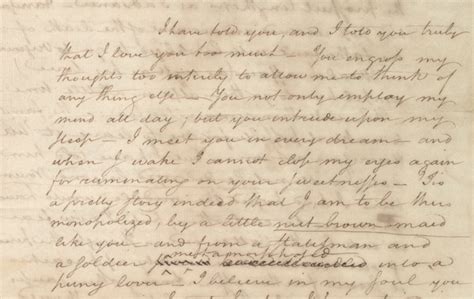 I have told you, and I told you truly
that I love you too much – You engross my
thoughts too intirely to allow me to think of
any thing else – You not only employ my
mind all day; but you intrude upon my
sleep – I meet you in every dream – and
when I wake I cannot close my eyes again
for ruminating on your sweetnesses – 'Tis
a pretty story indeed that I am to be thus
monopolized, by a little nut brown maid
like you – and from a statesman and
a soldier metamorphosed into a
puny lover – I believe in my soul you